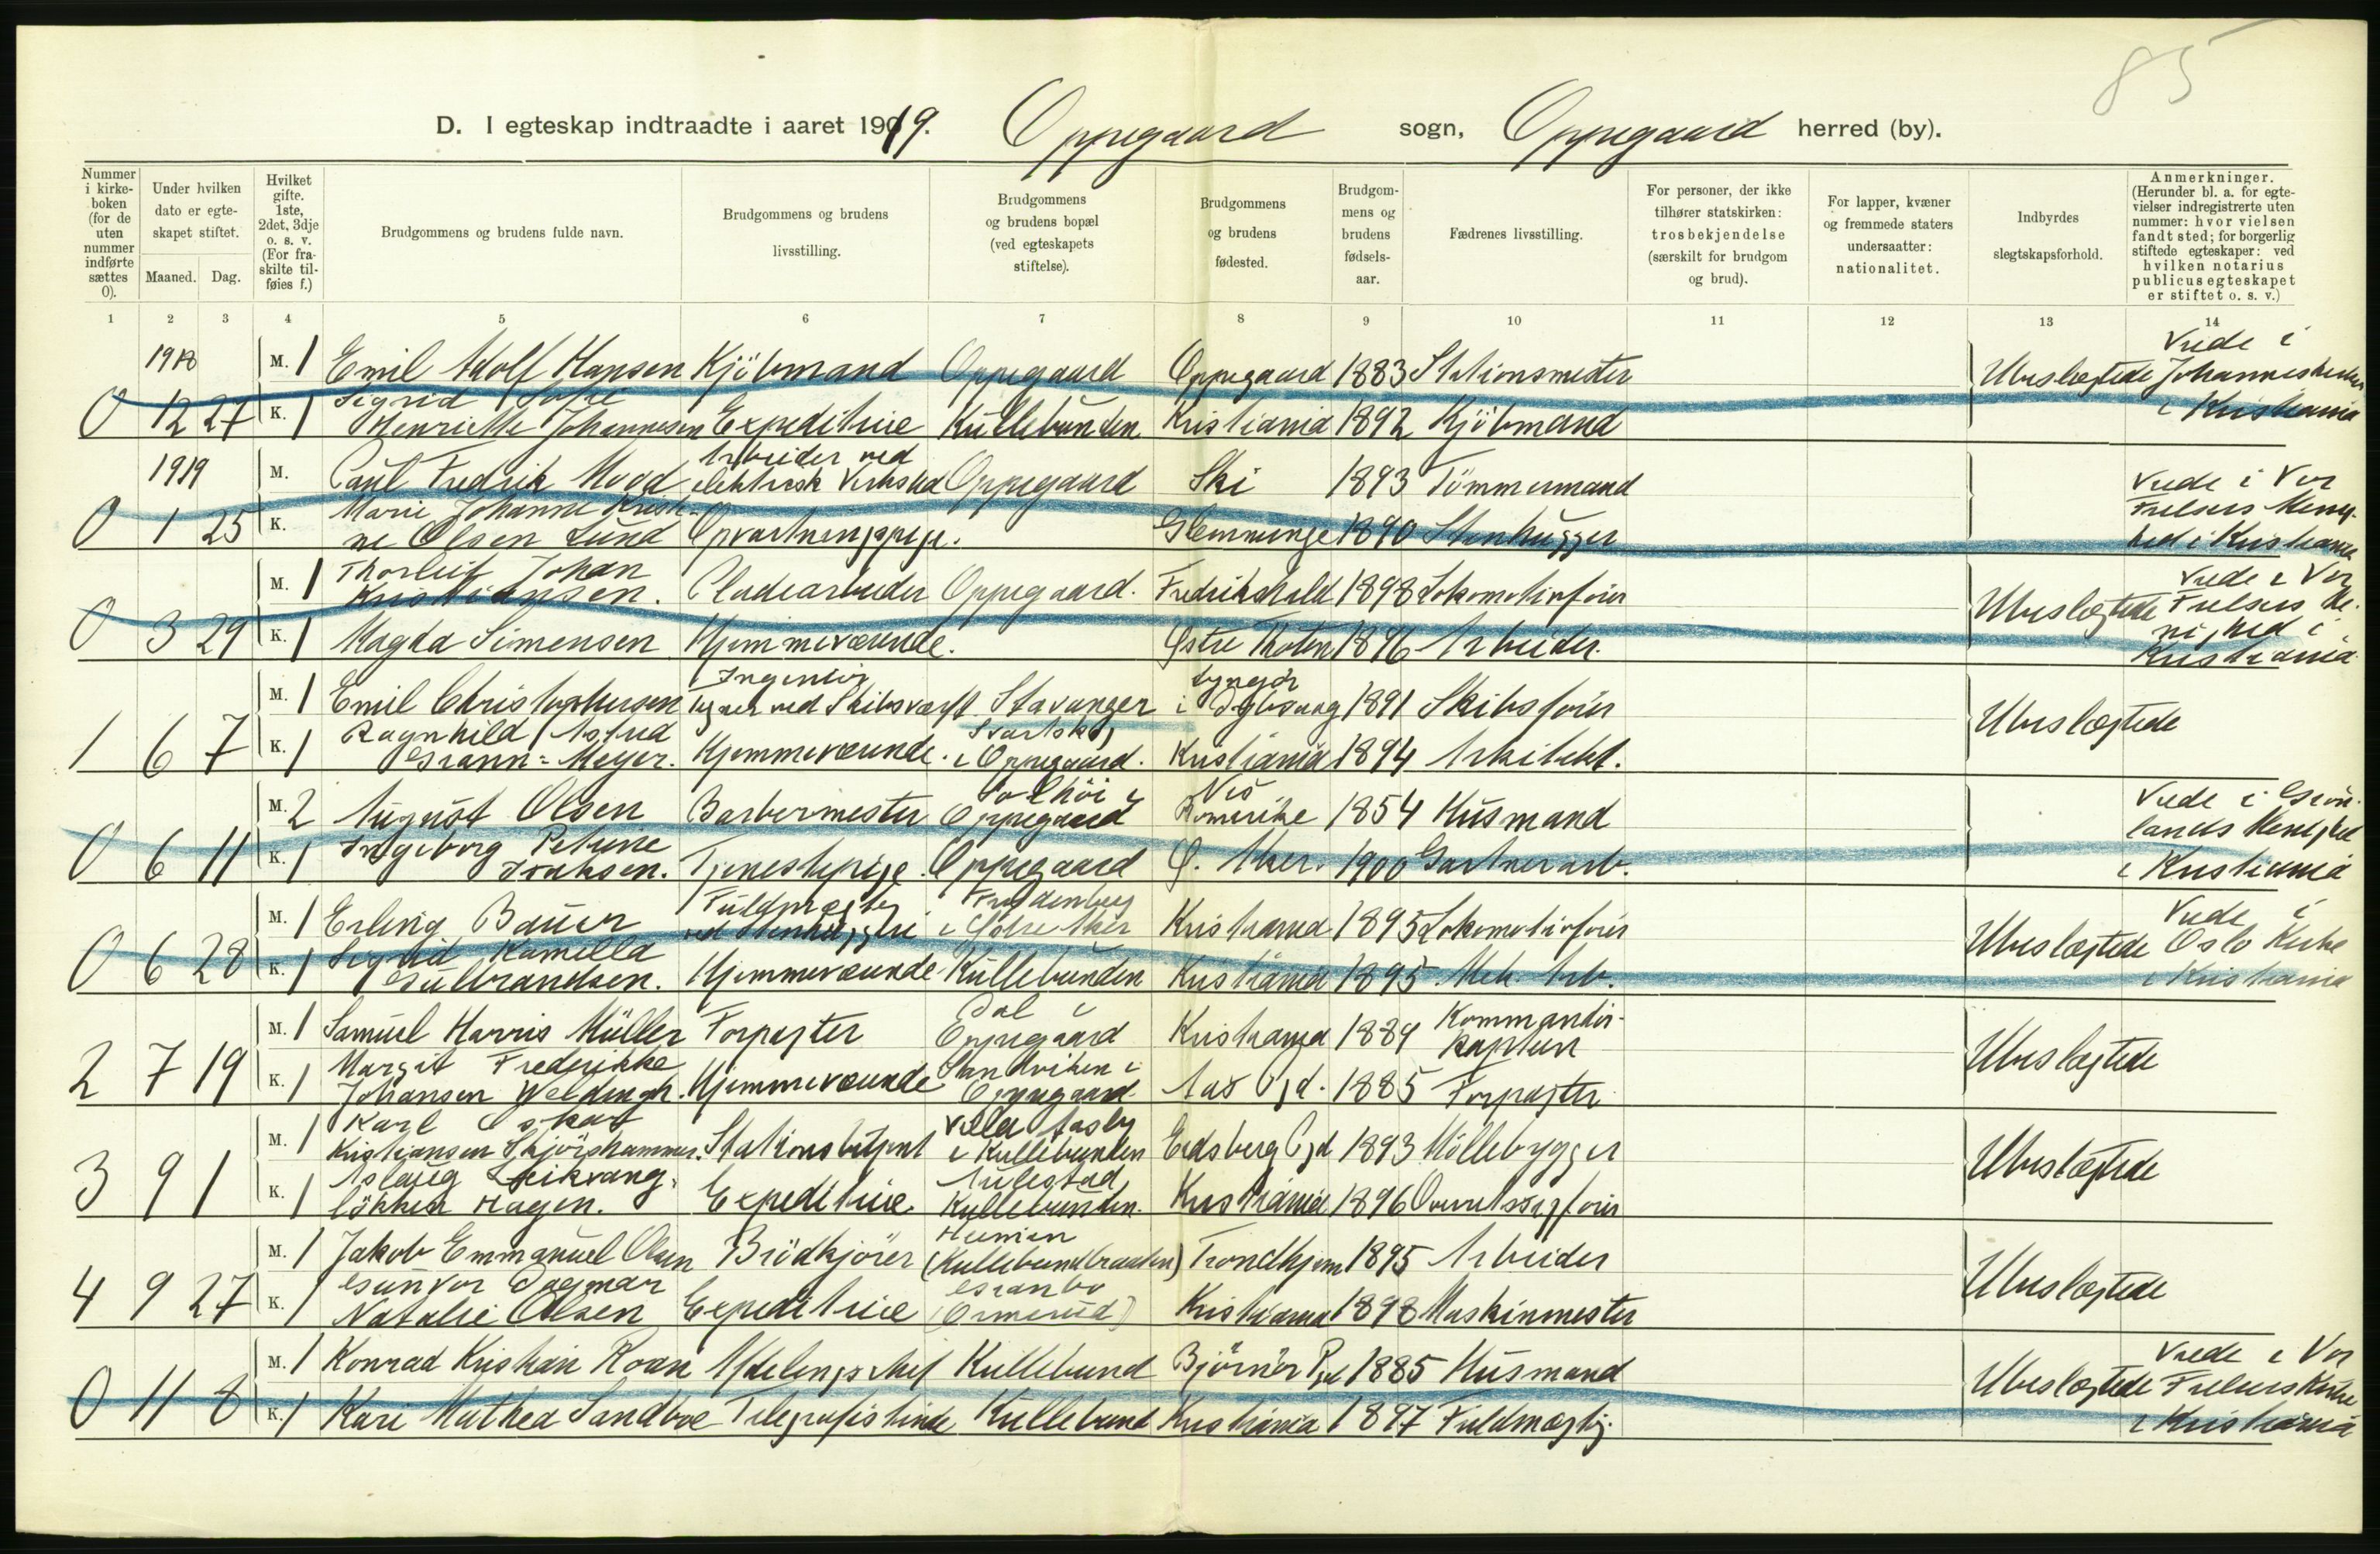 85
D. I egteskap indtraadte i aaret 1919. Oppegaard sogn, Oppegaard herred (by).
Nummer i kirke-boken (for de uten nummer indførte sættes 0).
Under hvilken dato er egte-skapet stiftet.
Maaned. Dag.
Hvilket gifte. 1ste, 2det, 3dje o. s. v. (For fra-skilte til-føies f.)
Brudgommens og brudens fulde navn.
Brudgommens og brudens livsstilling.
Brudgommens og brudens bopæl (ved egteskapets stiftelse).
Brudgommens og brudens fødested.
Brudgom-mens og brudens fødsels-aar.
Fædrenes livsstilling.
For personer, der ikke tilhører statskirken: trosbekjendelse (særskilt for brudgom og brud).
For lapper, kvæner og fremmede staters undersaatter: nationalitet.
Indbyrdes slegtskapsforhold.
Anmerkninger. (Herunder bl. a. for egte-vielser indregistrerte uten nummer: hvor vielsen fandt sted; for borgerlig stiftede egteskaper: ved hvilken notarius publicus egteskapet er stiftet o. s. v.)
1 2 3 4 5 6 7 8 9 10 11 12 13 14
1918 M. 1 Emil Adolf Hansen Kjöbmand Oppegaard Oppegaard 1883 Stationsmester
0 12 27 K. 1 Sigrid Sofie Henriette Johannesen Expeditrice Kullebunden Kristiania 1892 Kjöbmand
Ubeslægtede Viede i Johanneskirken i Kristiania
1919 M. Carl Fredrik Mogd Arbeider ved elektrisk Verksted Oppegaard Ski 1893 Tömmermand
0 1 25 K. Marie Johanne Kristi-ne Olsen Lund Opvartningspige. Glemminge 1890 Stenhugger
Viede i Vor Frelsers Menig-hed i Kristiania
M. 1 Thorleif Johan Kristiansen. Pladearbeider Oppegaard. Fredrikshald 1898 Lokomotivförer
0 3 29 K. 1 Magda Simensen Hjemmeværende. Østre Thoten 1896 Arbeider.
Ubeslægtede Viede i Vor Frelsers Me-nighed i Kristiania
M. 1 Emil Christophersen Ingeniör ved Skibsværft Stavanger Lyngör i Dybvaag 1891 Skibsförer
1 6 7 K. 1 Ragnhild Astrid Grann-Meyer. Hjemmeværende. Svartskog i Oppegaard. Kristiania 1894 Arkitekt.
Ubeslægtede
M. 2 August Olsen Barbermester Solhöi i Oppegaard Nes Romerike 1854 Husmand
0 6 11 K. 1 Ingeborg Petrine Isaksen. Tjenestepige. Oppegaard Ø. Aker. 1900 Gartnerarb.
Viede i Grön-lands Menighed i Kristiania
M. 1 Erling Bauer Fuldmægtig ved Stenhuggeri Frydenberg i Østre Aker Kristiania 1895 Lokomotivförer
0 6 28 K. 1 Sigrid Kamilla Gulbrandsen. Hjemmeværende Kullebunden Kristiania 1895 Mek. Arb.
Ubeslægtede Viede i Oslo Kirke i Kristiania
M. 1 Samuel Harris Müller Forpagter Dal i Oppegaard Kristiania 1884 Kommandör-kaptein
2 7 19 K. 1 Margit Frederikke Johansen Weldingh. Hjemmeværende Sandviken i Oppegaard. Aas Pgd. 1885 Forpagter
Ubeslægtede
M. 1 Karl Oskar Kristiansen Skjörshammer. Stationsbetjent Villa Aasly i Kullebunden Eidsberg Pgd 1893 Möllebygger
3 9 1 K. 1 Aslaug Leikvang-Lökken Hagen. Expeditrice. Aulestad Kullebunden. Kristiania 1896 Overretssagförer
Ubeslægtede
M. 1 Jakob Emmanuel Olsen Brödkjörer Heimen (Kullebundbraaten) Trondhjem 1895 Arbeider
4 9 27 K. 1 Gunvor Dagmar Natalie Olsen Expeditrice Granbo (Ormerud) Kristiania 1898 Maskinmester
Ubeslægtede
M. 1 Konrad Kristian Roan Afdelingschef Kullebund Björnör Pgd 1885 Husmand
0 11 8 K. 1 Kari Mathea Sandboe Telegrafistinde Kullebund Kristiania 1897 Fuldmægtig.
Ubeslægtede Viede i Vor Frelsers Kirke i Kristiania